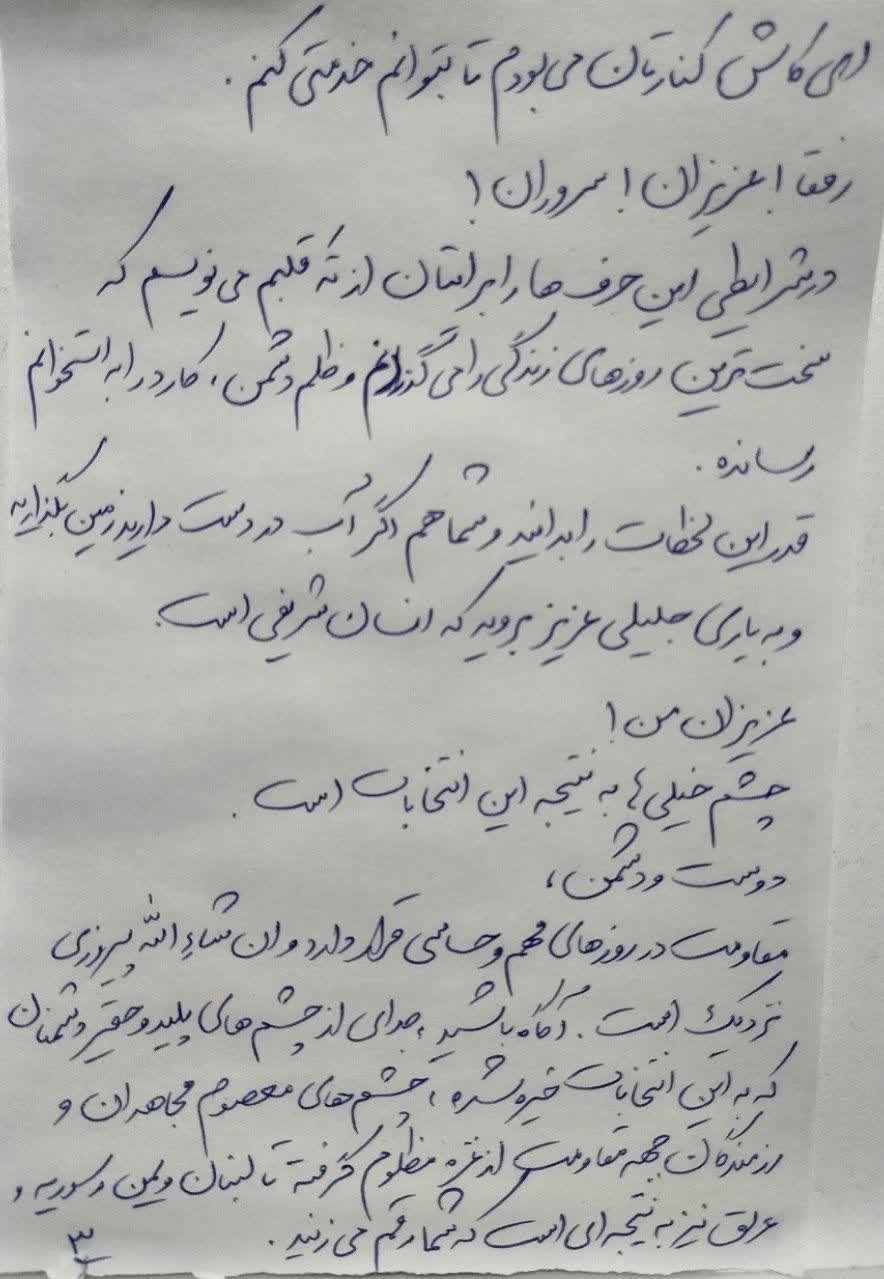 ای کاش کنارتان می‌بودم تا بتوانم خدمتی کنم.
رفقا! عزیزان! سروران!
در شرایطی این حرف‌ها را برایتان از ته قلبم می‌نویسم که
سخت‌ترین روزهای زندگی را می‌گذرانم و ظلم دشمن، کارد را به استخوانم
رسانده.
قدر این لحظات را بدانید و شما هم اگر آب در دست دارید زمین بگذارید
و به یاری جلیلی عزیز بروید که انسان شریفی است.
عزیزان من!
چشم خیلی‌ها به نتیجه این انتخابات است.
دوست و دشمن،
مقاومت در روزهای مهم و حساسی قرار دارد و ان شاءالله پیروزی
نزدیک است. آگاه باشید، جدای از چشم‌های پلید و حقیر دشمنان
که به این انتخابات خیره شده، چشم‌های معصوم مجاهدان و
رزمندگان جبهه مقاومت از غزه مظلوم گرفته تا لبنان و یمن و سوریه و
عراق نیز به نتیجه‌ای است که شما رقم می‌زنید.
۳